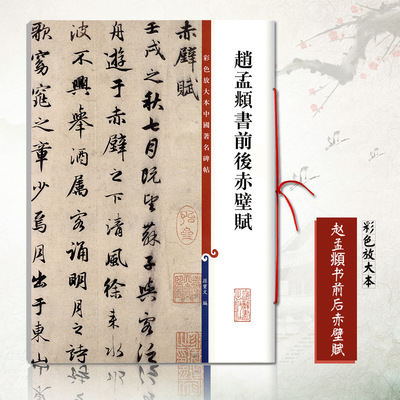 彩色放大本
赵孟頫书前后赤壁賦
趙孟頫書前後赤壁賦
彩色放大本中國著名碑帖
孫寶文 編
赤壁賦
壬戌之秋七月既望蘇子與客泛
舟遊于赤壁之下清風徐来水
波不興舉酒属客誦明月之詩
歌窈窕之章少焉月出于東山